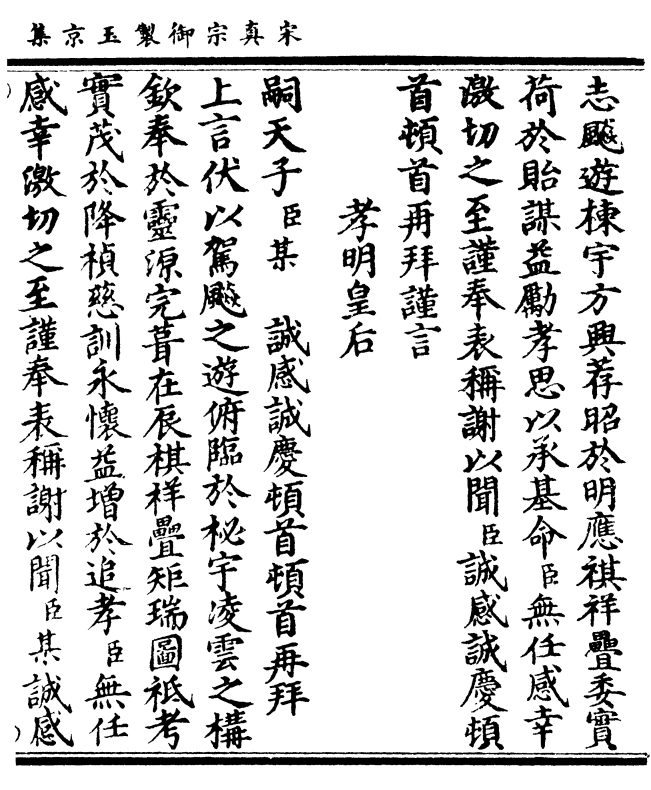 宋真宗御製玉京集
志飈遊棟宇方興荐昭於明應祺祥疊委實
荷於貽謀益勵孝思以承基命臣無任感幸
激切之至謹奉表稱謝以聞臣誠感誠慶頓
首頓首再拜謹言
孝明皇后
嗣天子臣某 誠感誠慶頓首頓首再拜
上言伏以駕飈之遊俯臨於秘宇凌雲之構
欽奉於靈源完葺在辰棋祥疊矩瑞圖祗考
實茂於降禎慈訓永懷益增於追孝臣無任
感幸激切之至謹奉表稱謝以聞臣某誠感